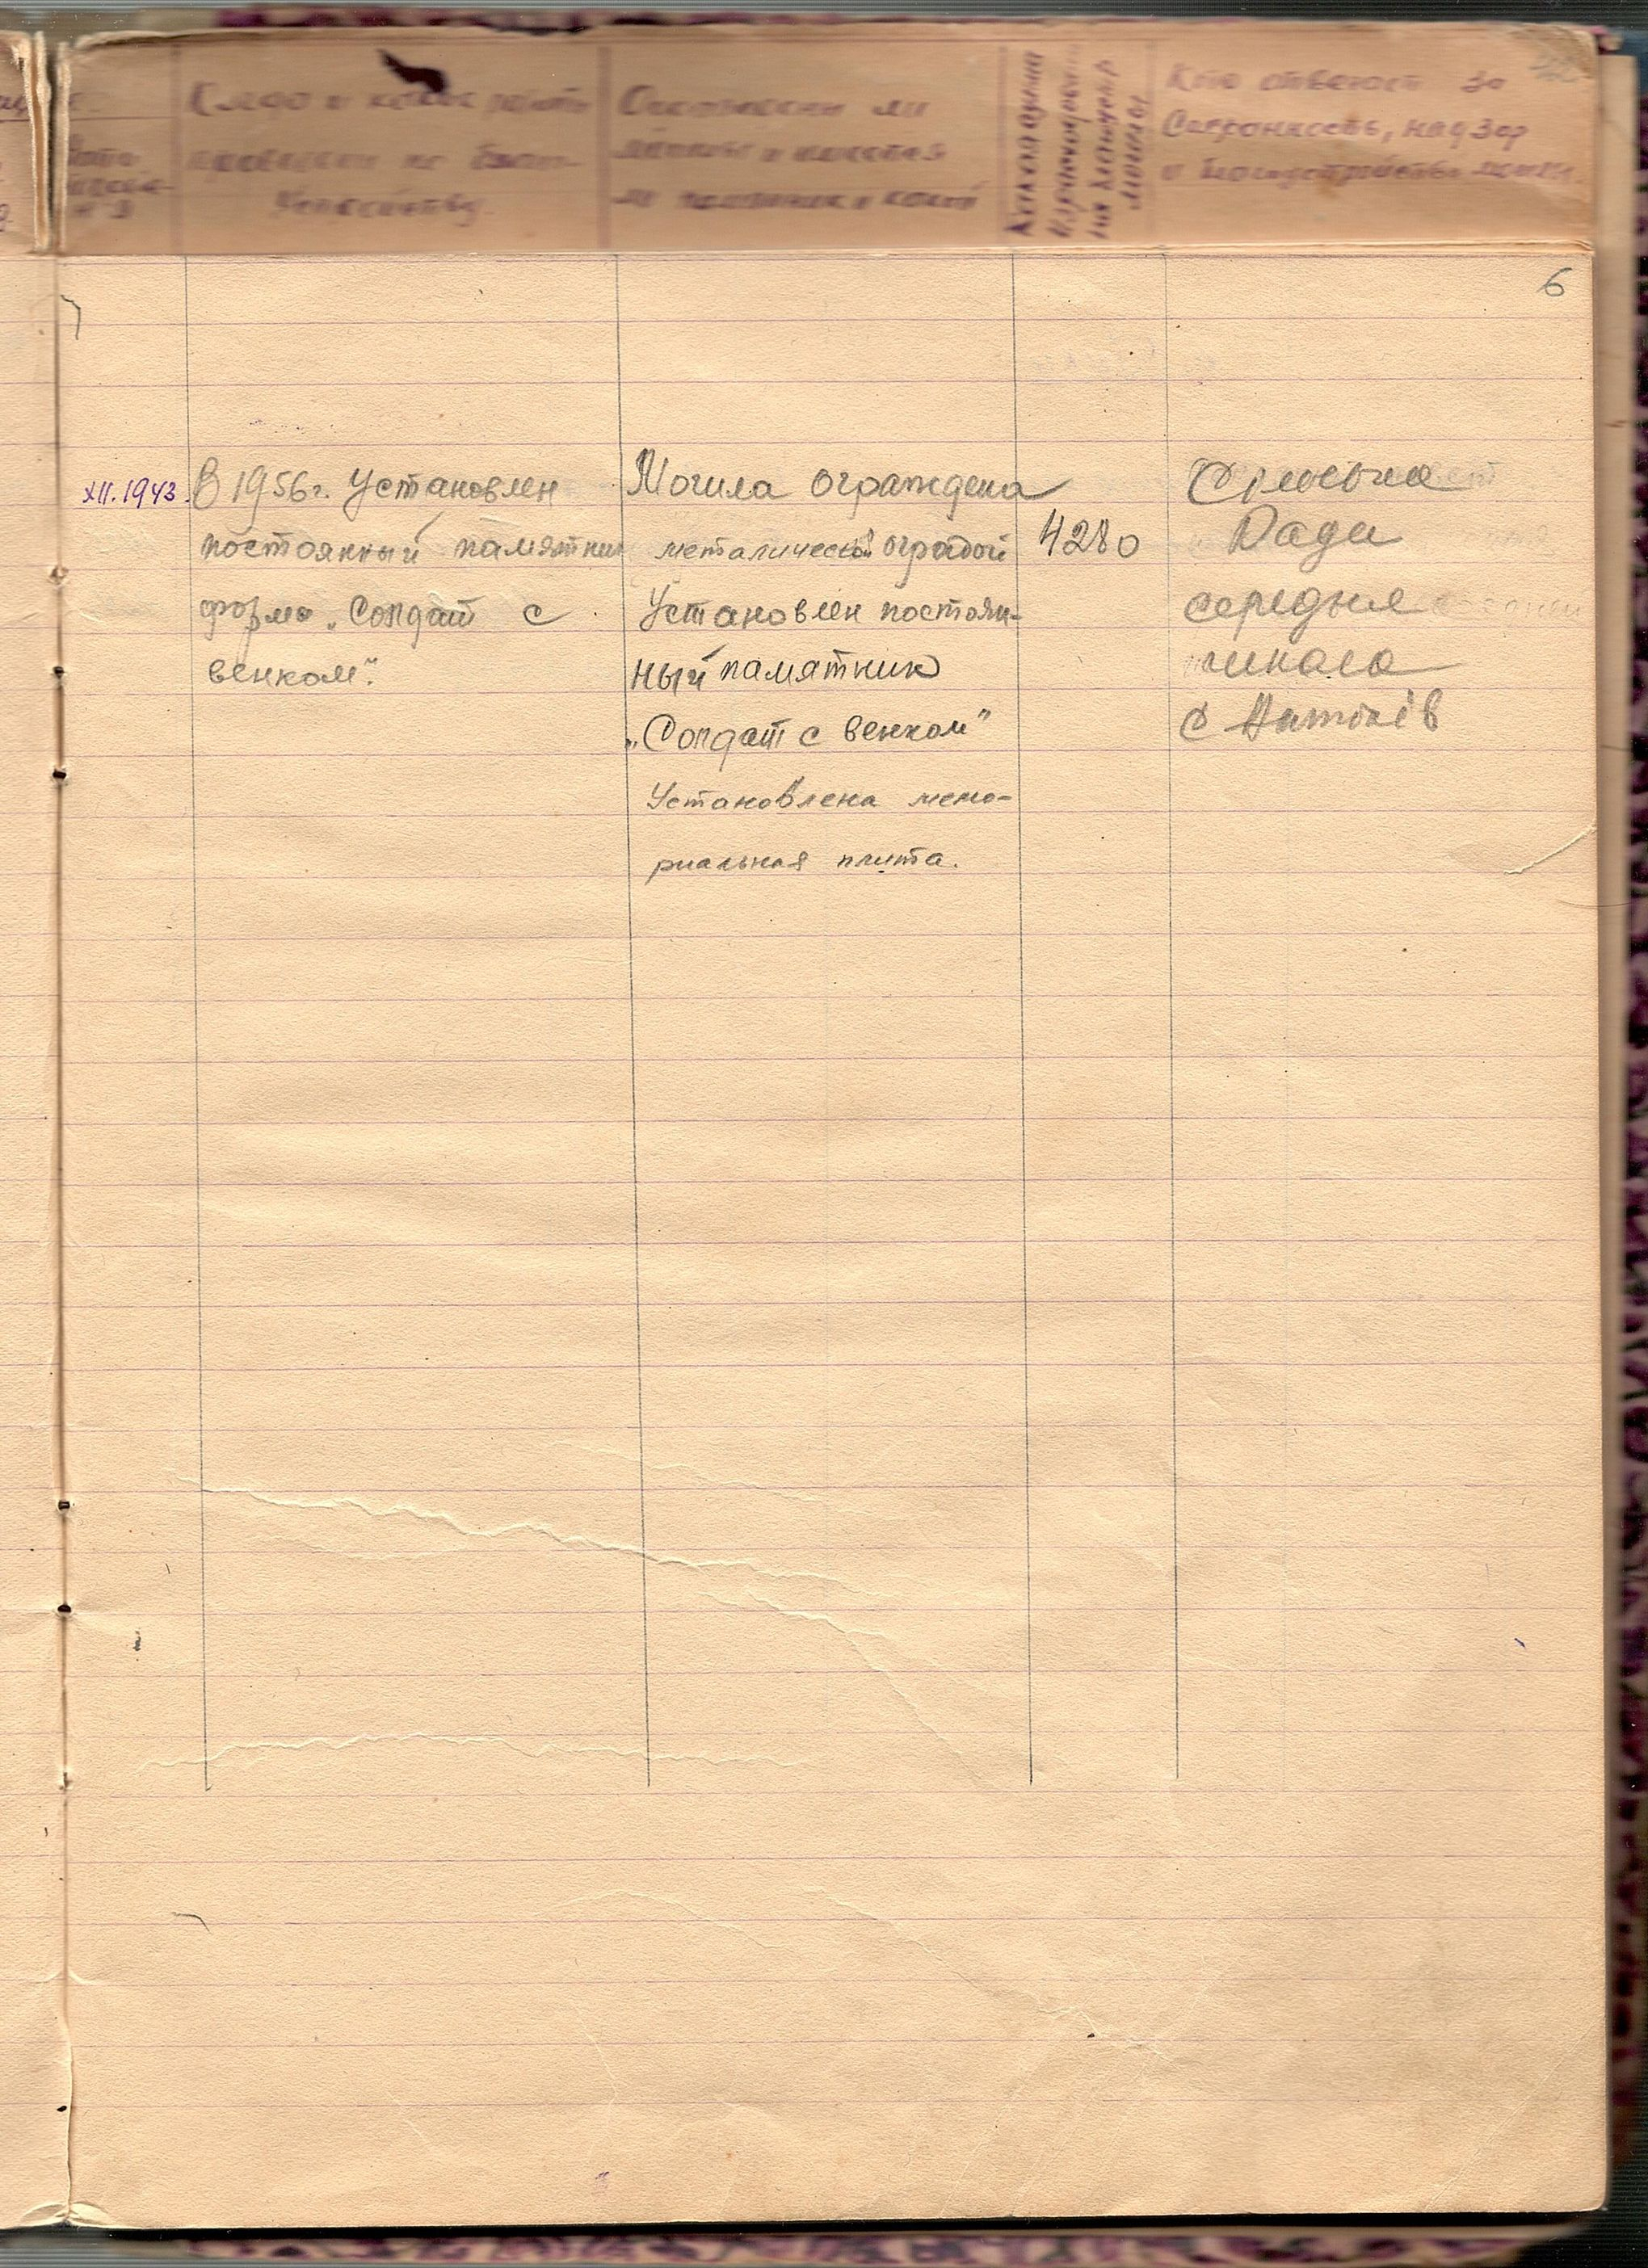 Когда и какие работы
проведены по благо-
устройству
ли
могилы и имеется
ли памятник и какой
Кто отвечает за
Сохранность, надзор
и благоустройство могил
6
XII.1943.
В 1956г. Установлен
постоянный памятник
форма „Солдат с
венком".
Могила ограждена
металической оградой
Установлен постоян-
ный памятник
„Солдат с венком"
Установлена мемо-
риальная плита.
4280
Сільська
Рада
середня
школа
с Антонів